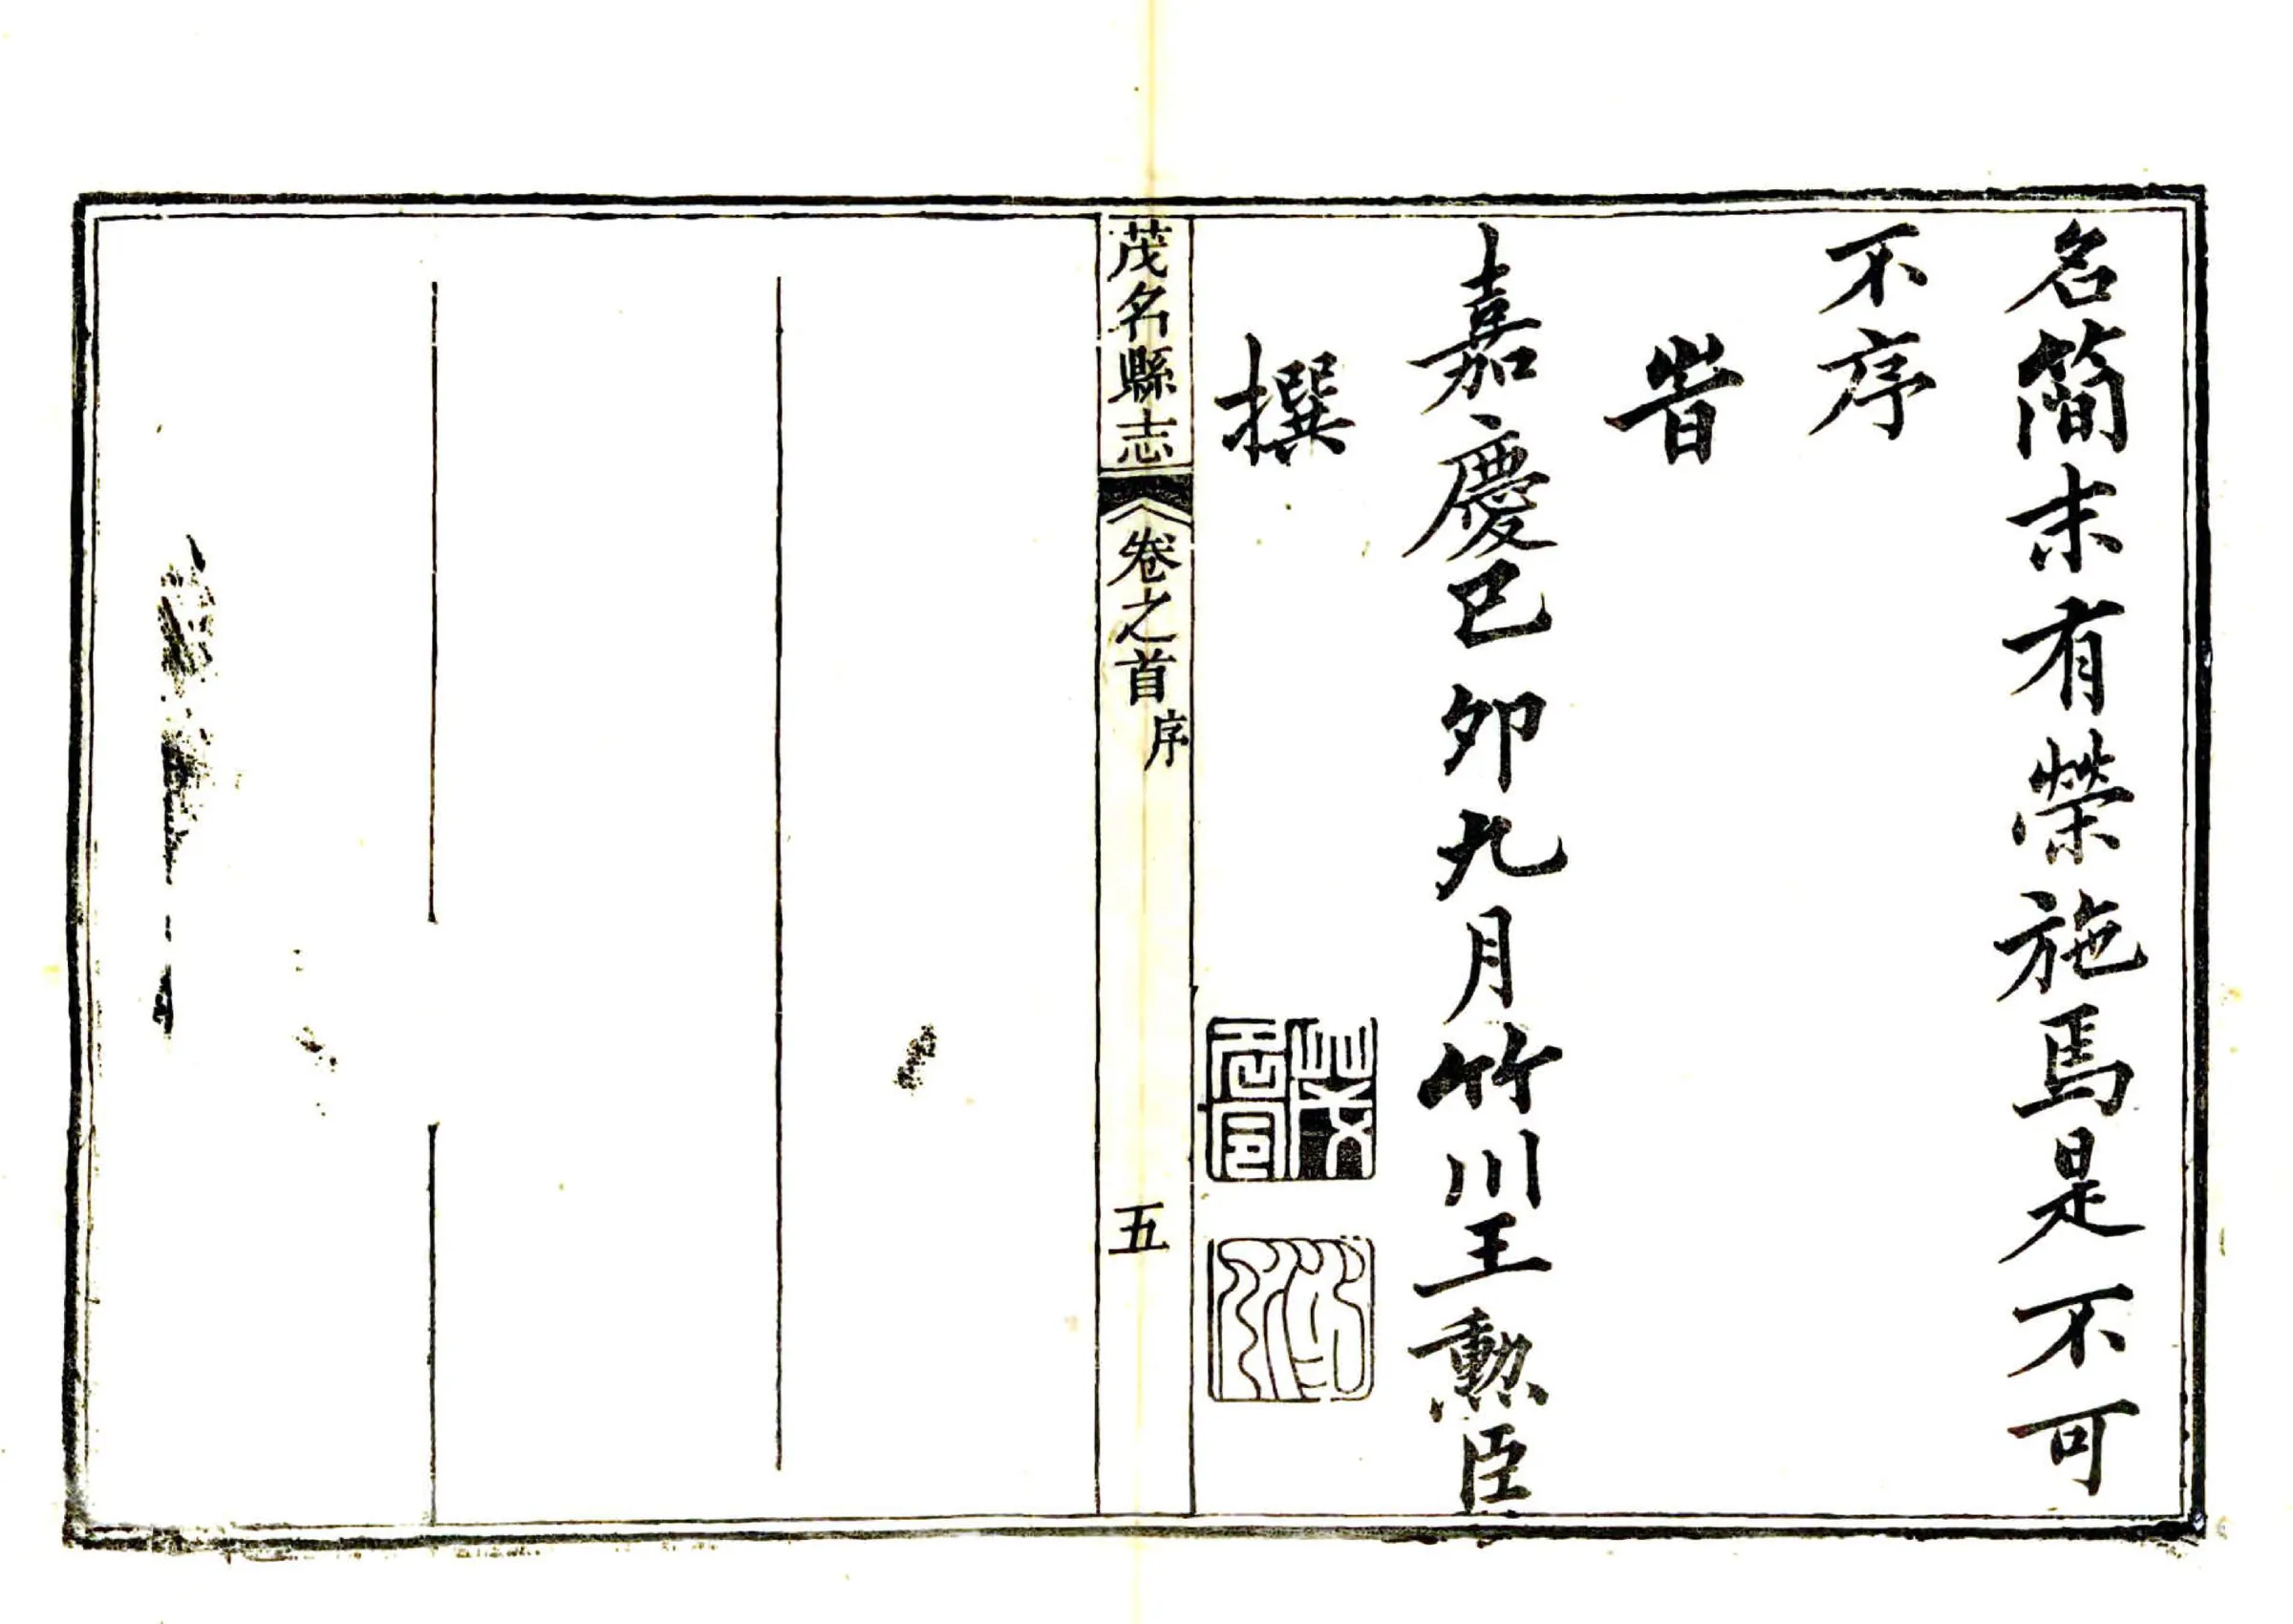 名簡末有榮施焉是不可
不序
旹
嘉慶己卯九月竹川王勲臣
撰
茂名縣志
卷之首
序
五